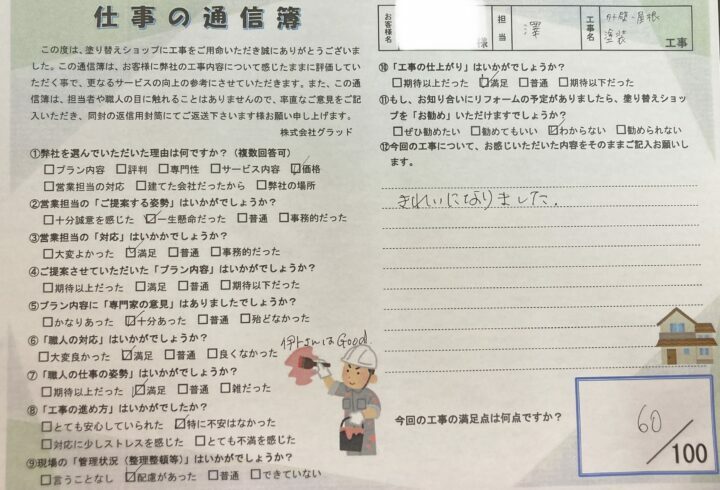 仕事の通信簿
お客様名
様
担当
澤
工事名
外壁・屋根
塗装
工事
この度は、塗り替えショップに工事をご用命いただき誠にありがとうございま
した。この通信簿は、お客様に弊社の工事内容について感じたままに評価してい
ただく事で、更なるサービスの向上の参考にさせていただきます。また、この通
信簿は、担当者や職人の目に触れることはありませんので、率直なご意見をご記
入いただき、同封の返信用封筒にてご返送下さいます様お願い申し上げます。
株式会社グラッド
①弊社を選んでいただいた理由は何ですか?(複数回答可)
□プラン内容 □評判 □専門性 □サービス内容 ☑価格
□営業担当の対応 □建てた会社だったから □弊社の場所
②営業担当の「ご提案する姿勢」はいかがでしょうか?
□十分誠意を感じた ☑一生懸命だった □普通 □事務的だった
③営業担当の「対応」はいかかでしょうか?
□大変よかった ☑満足 □普通 □事務的だった
④ご提案させていただいた「プラン内容」はいかがでしょうか?
□期待以上だった □満足 □普通 □期待以下だった
⑤プラン内容に「専門家の意見」はありましたでしょうか?
□かなりあった ☑十分あった □普通 □殆どなかった
⑥「職人の対応」はいかがでしょうか?
伊トさんはGood
□大変良かった ☑満足 □普通 □良くなかった
⑦「職人の仕事の姿勢」はいかがでしょうか?
□期待以上だった ☑満足 □普通 □雑だった
⑧「工事の進め方」はいかがでしたか?
□とても安心していられた ☑特に不安はなかった
□対応に少しストレスを感じた □とても不満を感じた
⑨現場の「管理状況(整理整頓等)」はいかがでしょうか?
□言うことなし ☑配慮があった □普通 □できていない
⑩「工事の仕上がり」はいかがでしょうか?
□期待以上だった ☑満足 □普通 □期待以下だった
⑪もし、お知り合いにリフォームの予定がありましたら、塗り替えショッ
プを「お勧め」いただけますでしょうか?
□ぜひ勧めたい □勧めてもいい ☑わからない □勧められない
⑫今回の工事について、お感じいただいた内容をそのままご記入お願いし
ます。
きれいになりました.
今回の工事の満足点は何点ですか?
60/100